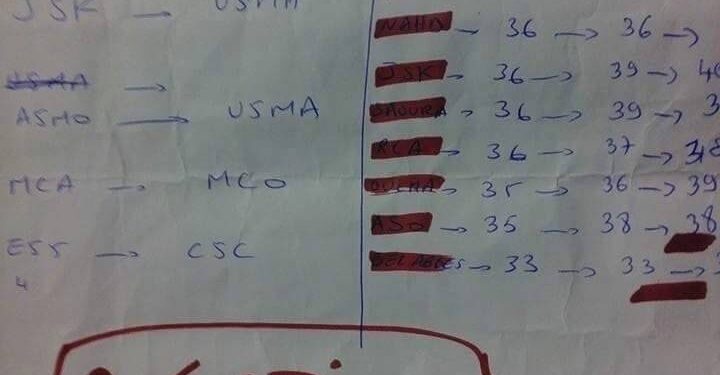 JSK → USMA
USMA →
ASMO → USMA
MCA → MCO
ESS → CSC
4
NAHD - 36 → 36 →
JSK - 36 → 39 → 40
SAOURA - 36 → 39 → 3
RCA - 36 → 37 →
OLCHA - 35 → 36 → 39
ASO - 35 → 38 → 38
BEL ABBES - 33 → 33 →